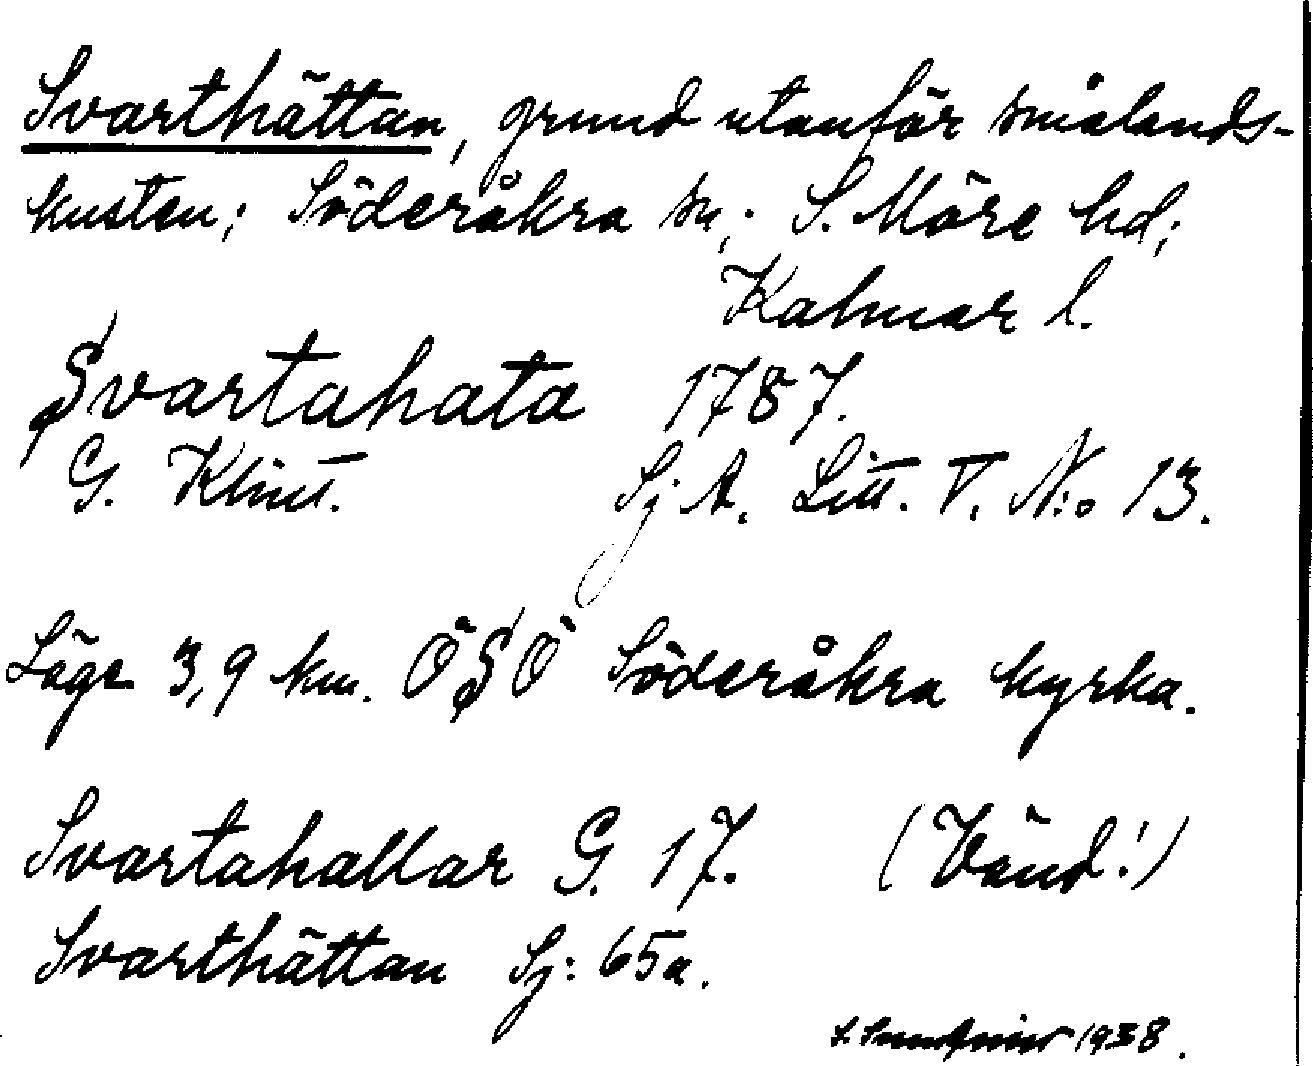 Svarthättan, grund utanför smålands-
kusten; Söderåkra sn; S. Möre hd;
Kalmar l.
Svartahata 1787.
G. Klint. Sj. A. Litt. V. N:o 13.
Läge 3,9 km. ÖSÖ Söderåkra kyrka.
Svartahallar G. 17. (Vänd!)
Svarthättan Sj: 65a.
1938.